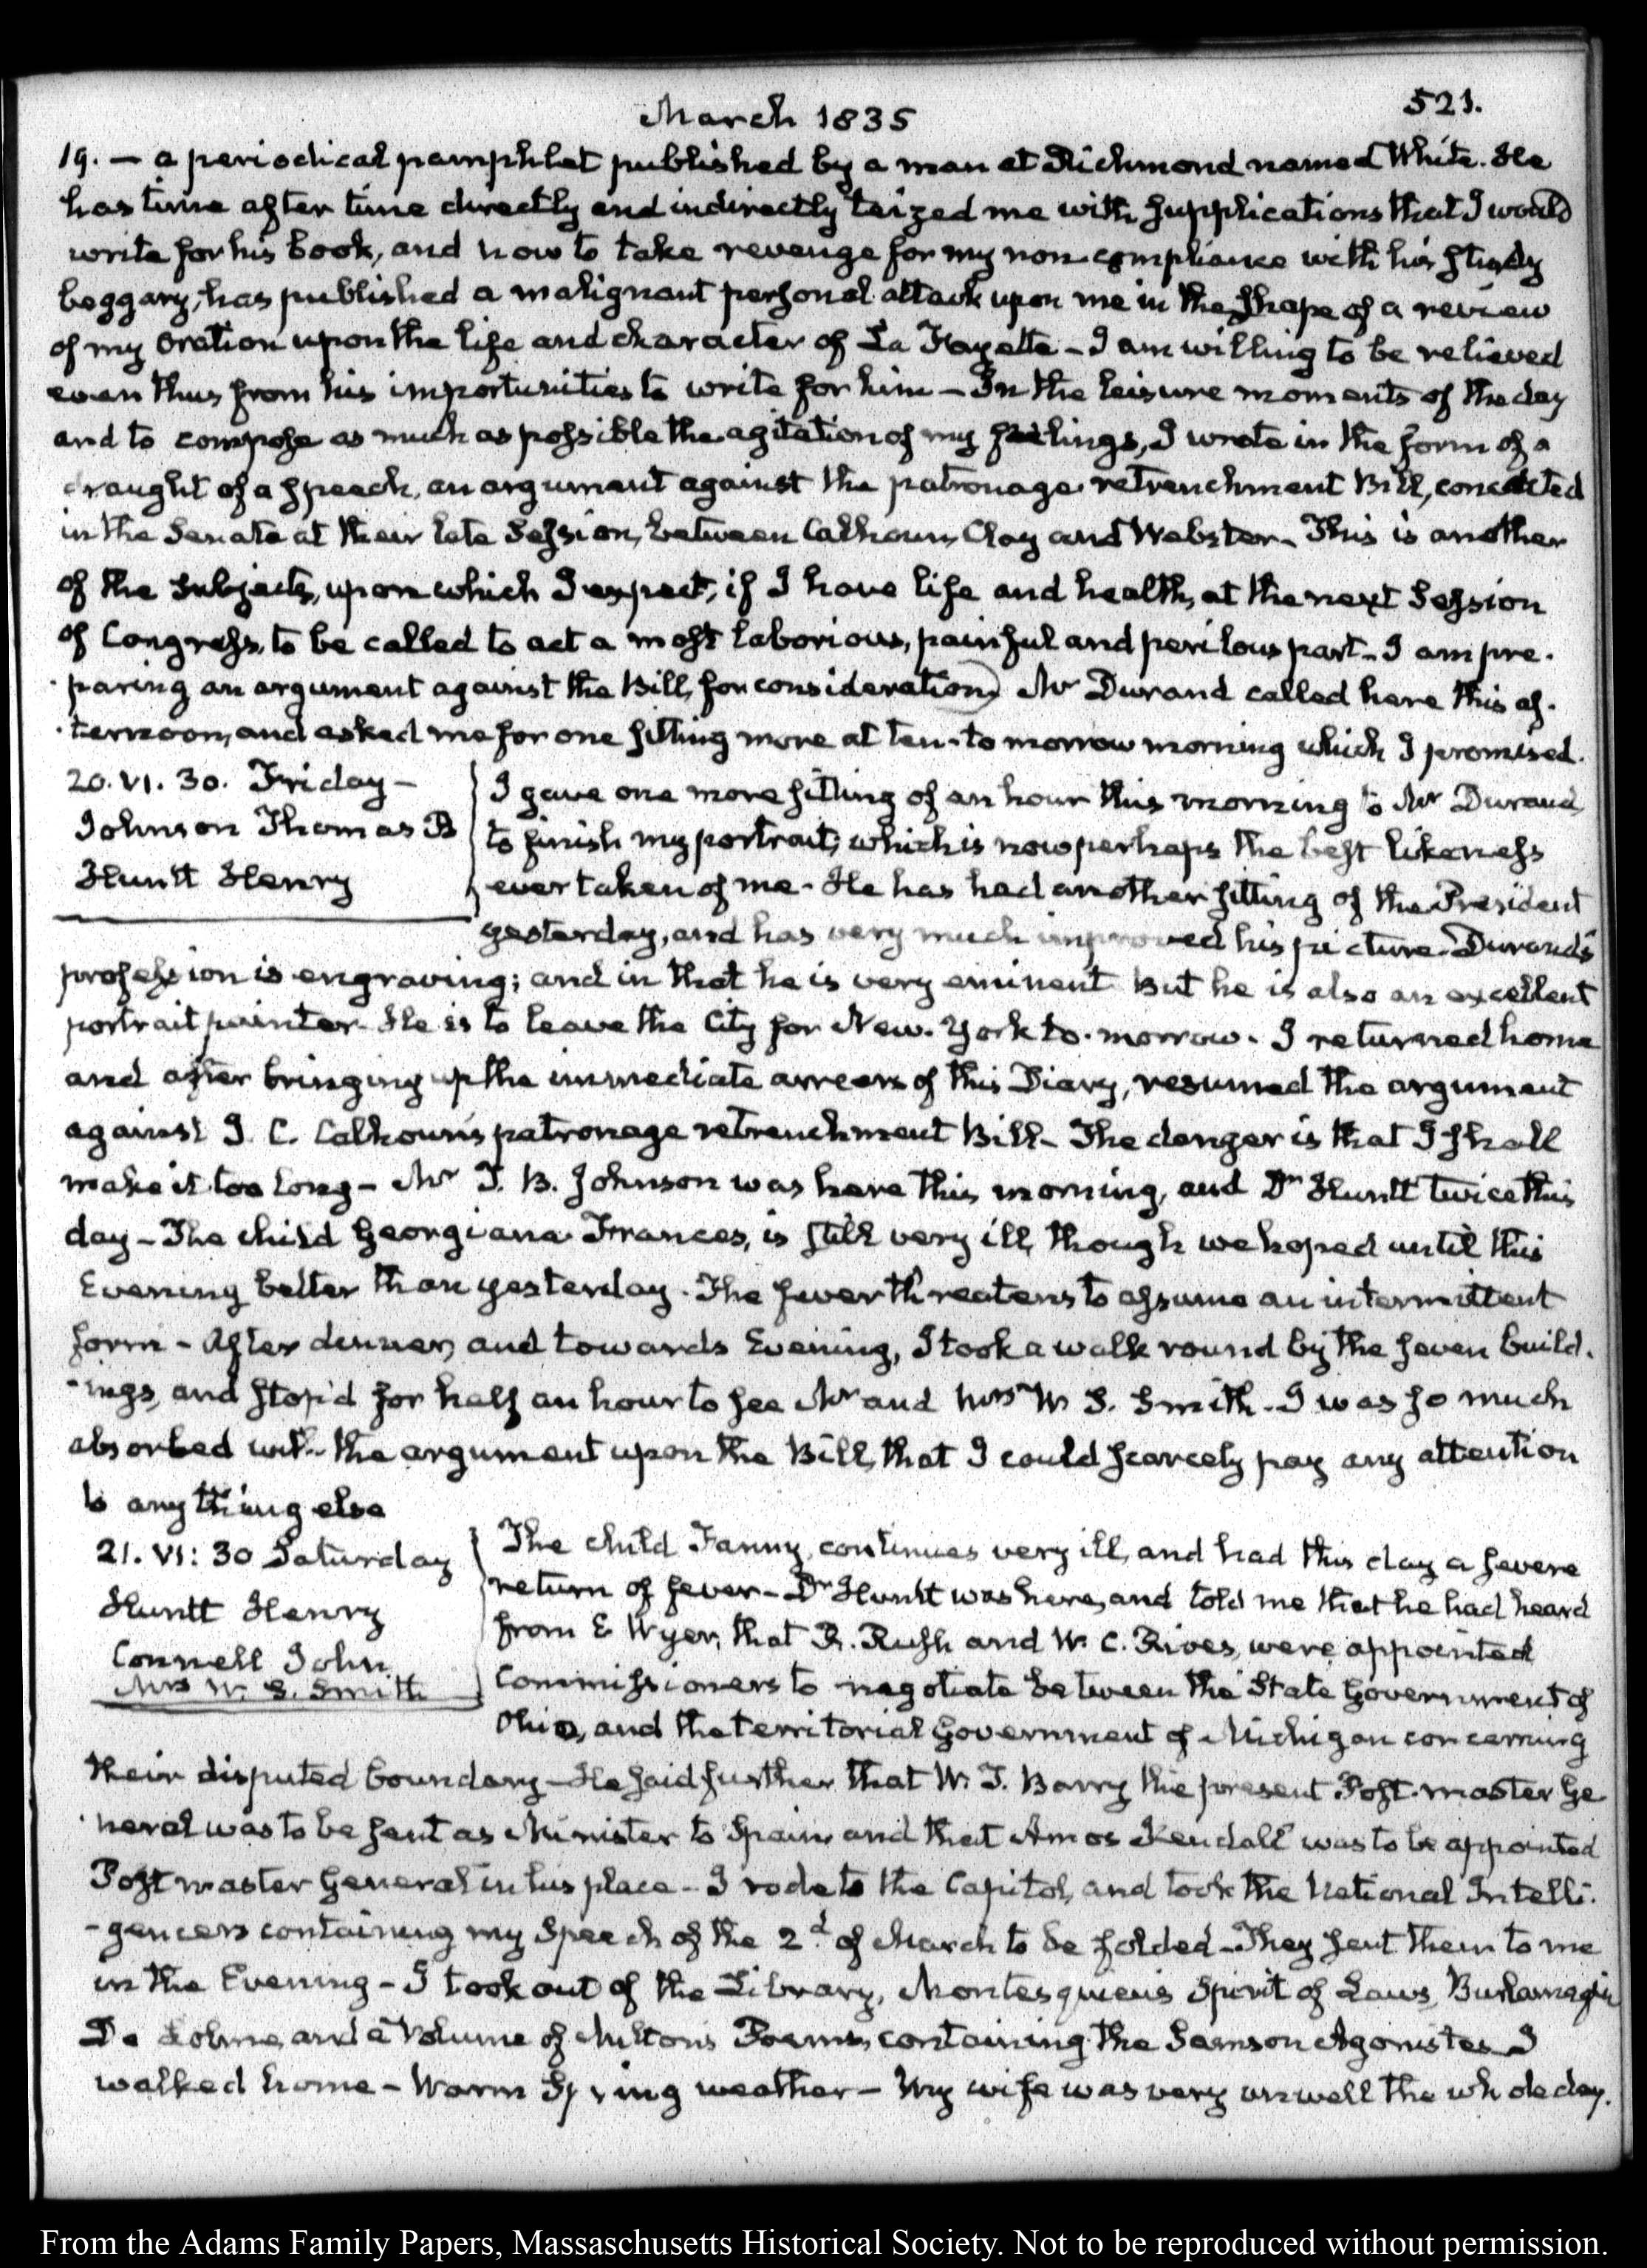 March 1835
521.
19. — a periodical pamphlet published by a man at Richmond named White. He
has time after time directly and indirectly teized me with supplications that I would
write for his book, and now to take revenge for my non compliance with his sturdy
beggary, has published a malignant personal attack upon me in the shape of a review
of my Oration upon the life and character of La Fayette — I am willing to be relieved
even thus from his importunities to write for him — In the leisure moments of the day
and to compose as much as possible the agitation of my feelings, I wrote in the form of a
draught of a speech, an argument against the patronage retrenchment Bill, concocted
in the Senate at their late Session, between Calhoun, Clay and Webster. This is another
of the subjects, upon which I expect, if I have life and health, at the next Session
of Congress, to be called to act a most laborious, painful and perilous part — I am pre-
-paring an argument against the Bill, for consideration) Mr Durand called here this af-
-ternoon, and asked me for one sitting more at ten to morrow morning which I promised.
20. VI. 30. Friday —
Johnson Thomas B
Huntt Henry
I gave one more sitting of an hour this morning to Mr Durand,
to finish my portrait; which is now perhaps the best likeness
ever taken of me. He has had another sitting of the President
yesterday, and has very much improved his picture. Durand's
profession is engraving; and in that he is very eminent. But he is also an excellent
portrait painter. He is to leave the City for New-York to-morrow. I returned home
and after bringing up the immediate arrears of this Diary, resumed the argument
against J. C. Calhoun's patronage retrenchment Bill — The danger is that I shall
make it too long — Mr T. B. Johnson was here this morning, and Dr Huntt twice this
day — The child Georgiana Frances, is still very ill, though we hoped until this
Evening better than yesterday. The fever threatens to assume an intermittent
form — After dinner, and towards Evening, I took a walk round by the seven build-
-ings, and stop'd for half an hour to see Mr and Mrs W. S. Smith. I was so much
absorbed with the argument upon the Bill, that I could scarcely pay any attention
to any thing else
21. VI: 30 Saturday
Huntt Henry
Connell John
Mrs W. S. Smith
The child Fanny, continues very ill, and had this day a severe
return of fever — Dr Huntt was here, and told me that he had heard
from E Wyer, that R. Rush and W. C. Rives, were appointed
Commissioners to negotiate between the State Government of
Ohio, and the territorial Government of Michigan concerning
their disputed boundary — He said further that W. T. Barry the present Post-master Ge
-neral was to be sent as Minister to Spain, and that Amos Kendall was to be appointed
Post master General in his place — I rode to the Capitol, and took the National Intelli-
-gencers containing my Speech of the 2d of March to be folded — They sent them to me
in the Evening — I took out of the Library, Montesquieu's Spirit of Laws, Burlamaqui
De Lolme, and a Volume of Milton's Poems, containing the Samson Agonistes. I
walked home — Warm Spring weather — My wife was very unwell the whole day.
From the Adams Family Papers, Massachusetts Historical Society. Not to be reproduced without permission.